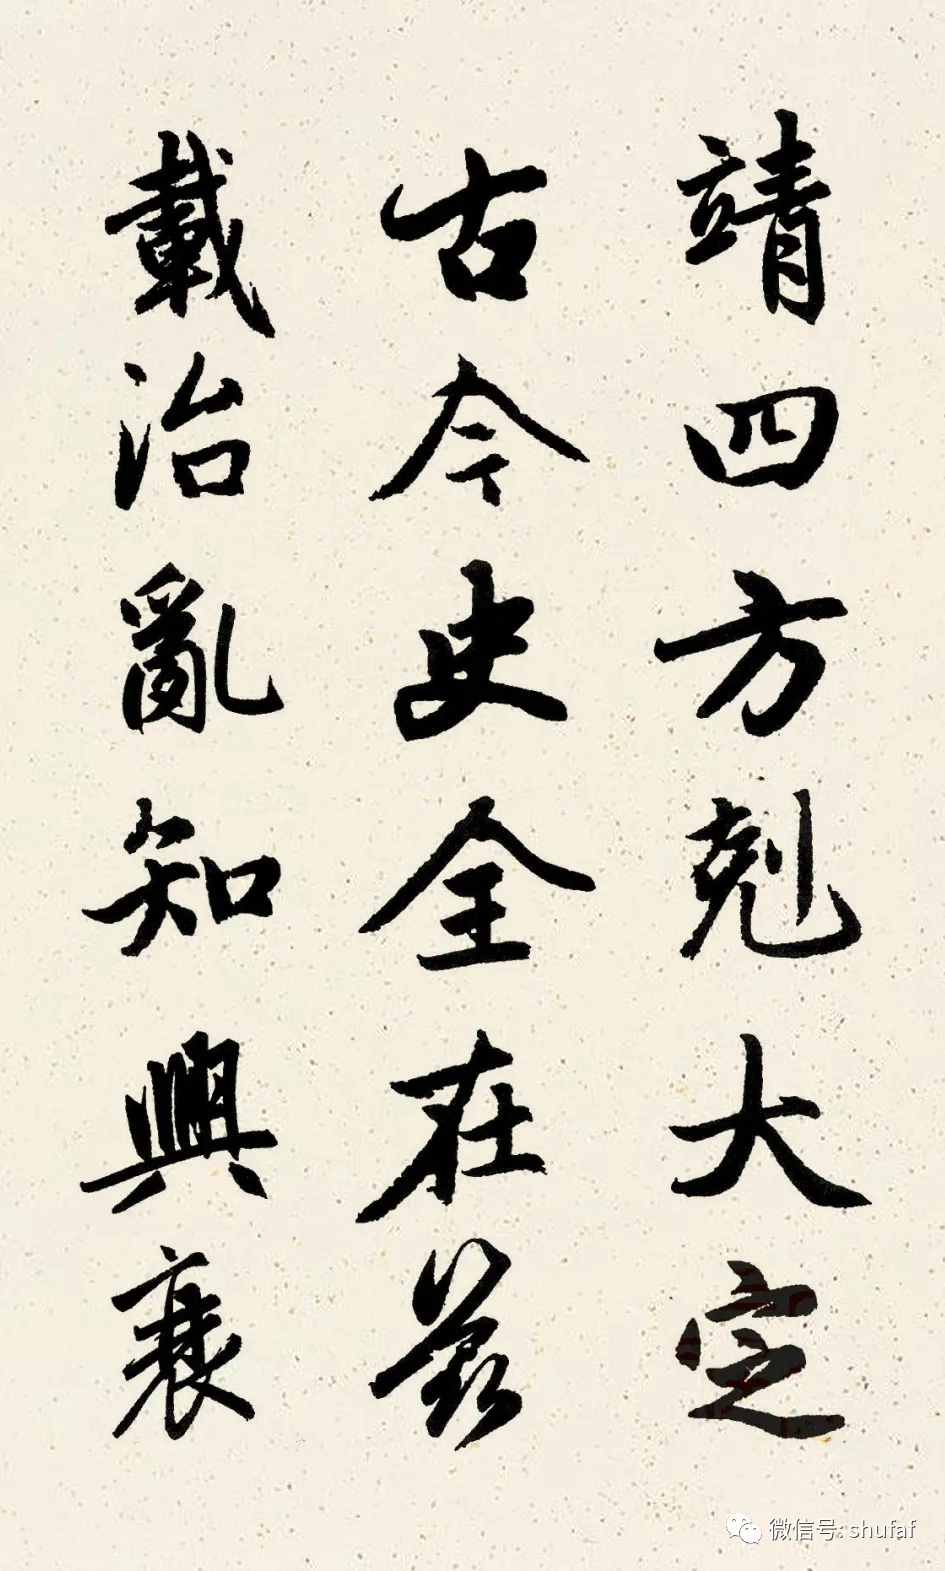 靖四方剋大定
古今史全在茲
載治亂知興衰
微信号: shufaf